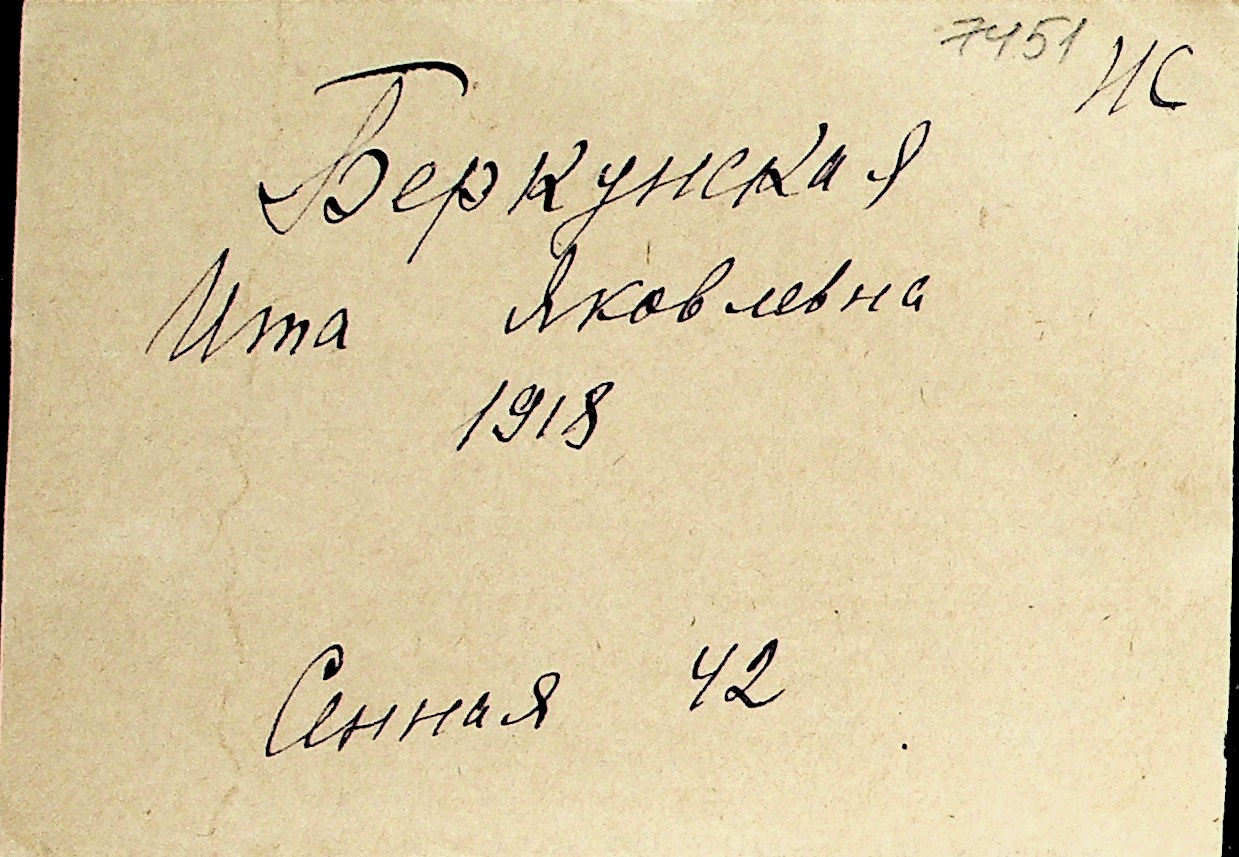 7451 ИС
Беркунская
Ита Яковлевна
1918
Сенная 42